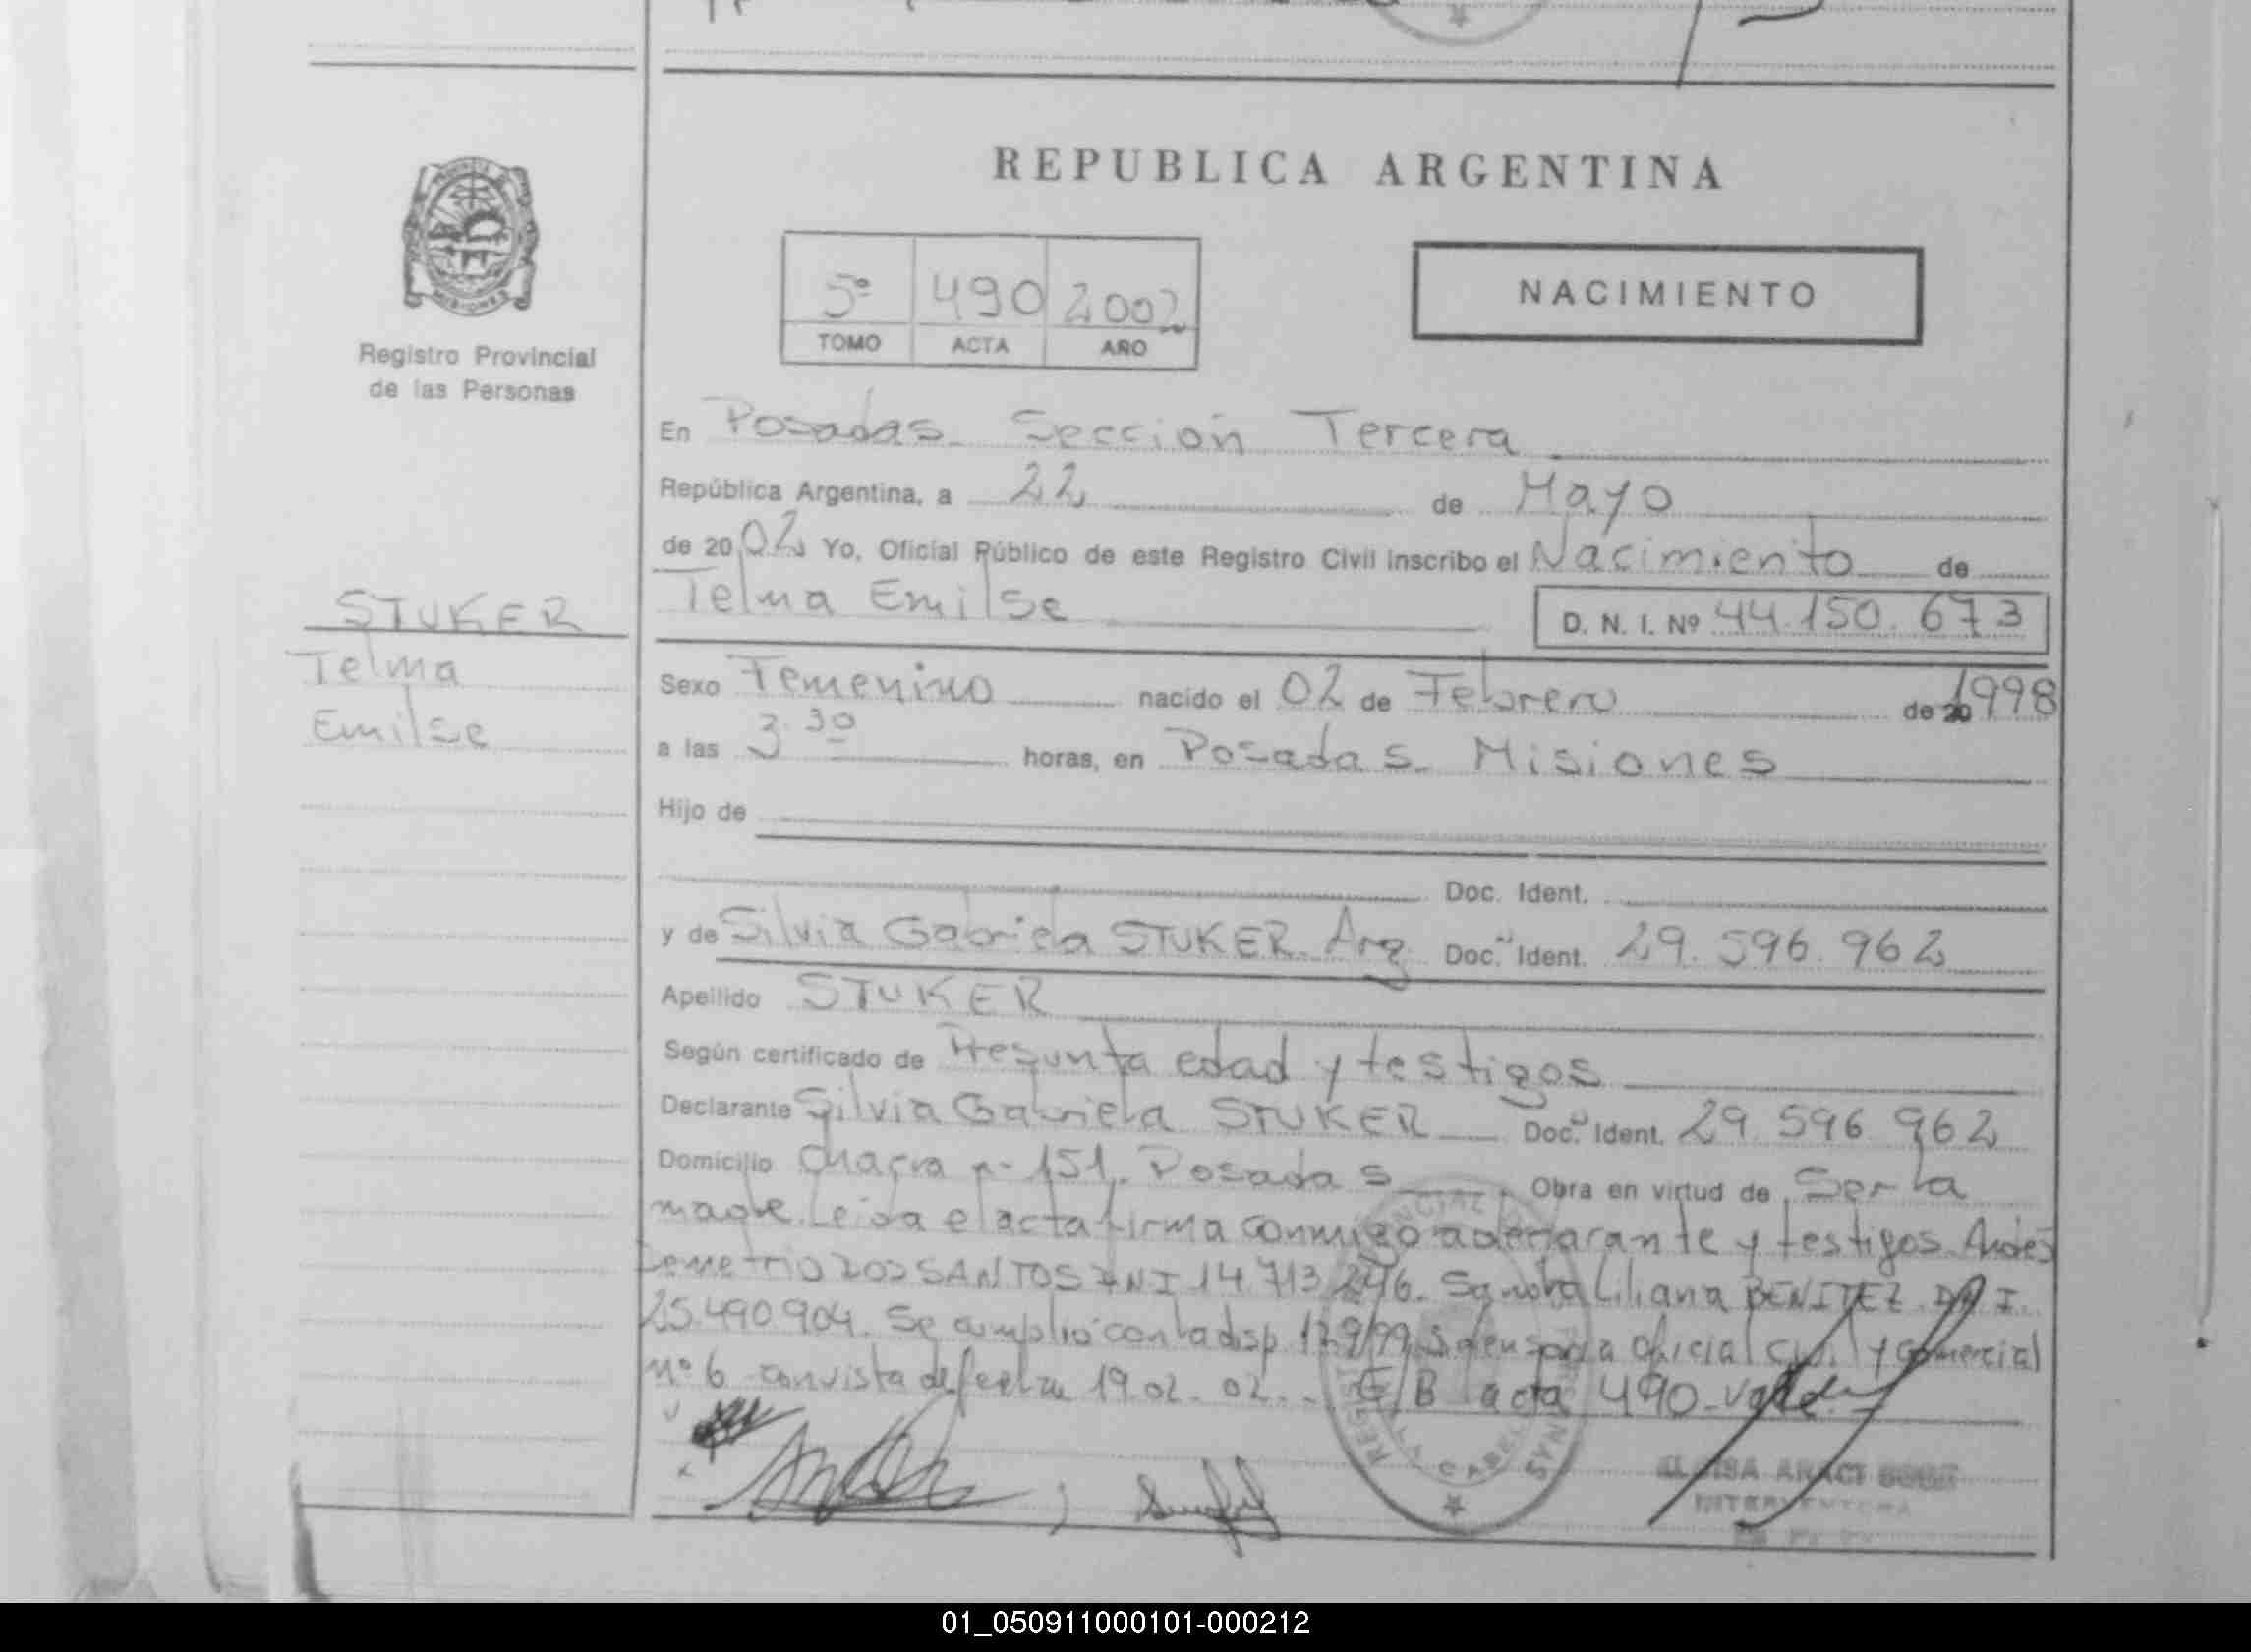 REPUBLICA ARGENTINA
MISIONES
Registro Provincial
de las Personas
5º 490 2002
TOMO ACTA AÑO
NACIMIENTO
En Posadas. Sección Tercera
República Argentina, a 22 de Mayo
de 2002 Yo, Oficial Público de este Registro Civil inscribo el Nacimiento de
Telma Emilse D. N. I. Nº 44.150.673
STUKER
Telma
Emilse
Sexo Femenino nacido el 02 de Febrero de 20 1998
a las 3.30 horas, en Posadas. Misiones
Hijo de
Doc. Ident.
y de Silvia Gabriela STUKER. Arg Doc. Ident. 29.596.962
Apellido STUKER
Según certificado de Presunta edad y testigos
Declarante Silvia Gabriela STUKER Doc. Ident. 29.596.962
Domicilio Chacra nº 151. Posadas Obra en virtud de Ser la
madre. Leida el acta firma conmigo la declarante y testigos.
Demetrio DOS SANTOS DNI 14.713.246. Sandra Liliana BENITEZ. D.N.I.
25.490.904. Se cumplió con la disp. 129/99, Defensoria Oficial Civil y Comercial
nº 6 con vista de fecha 19.02.02. E/B acta 490. Vale
ELOISA ARACI
INTERVENTORA
01_050911000101-000212